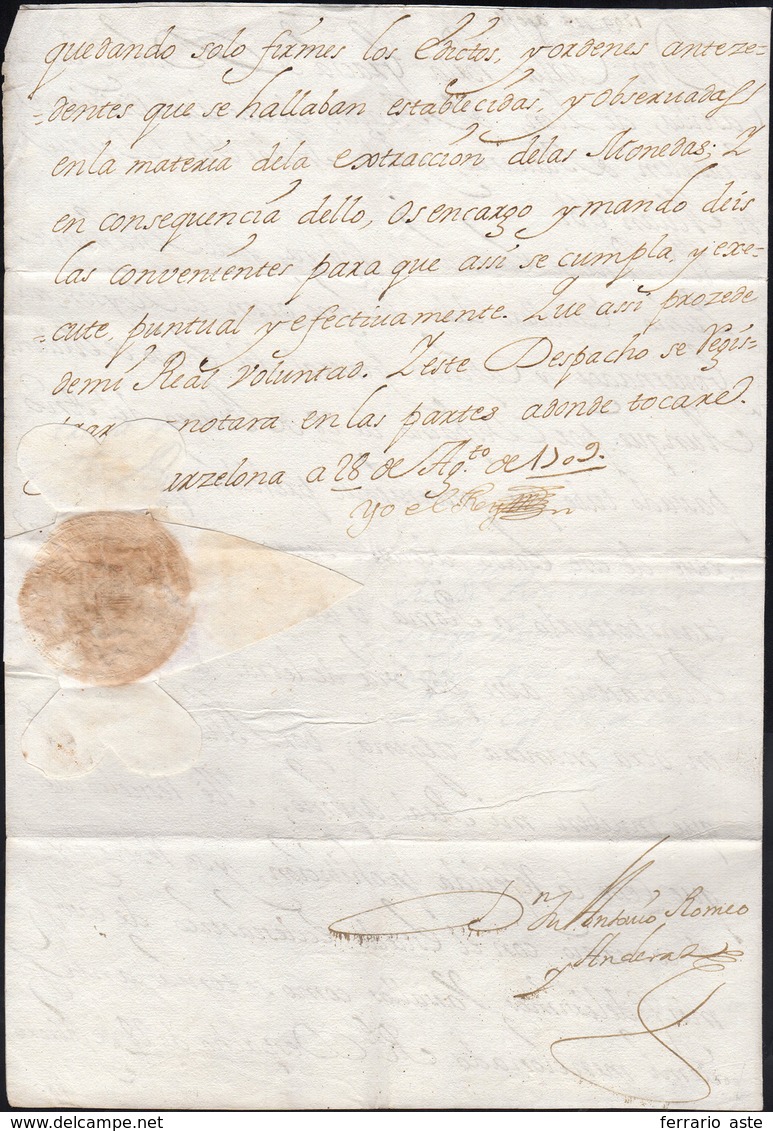 quedando solo firmes los edictos, y ordenes anteze-
=dentes que se hallaban establecidas, y observadas
en la materia dela extraccion delas Monedas; Y
en consequencia dello, os encargo y mando deis
las convenientes para que assi se cumpla, y exe-
=cute, puntual y efectivamente. Que assi prozede
demi Real Voluntad. Y este Despacho se regis-
notara en las partes adonde tocare.
arzelona a 28 de Ag.to de 1709.
Yo el Rey
D.n Antonio Romeo
y Anderaz
ferrario aste